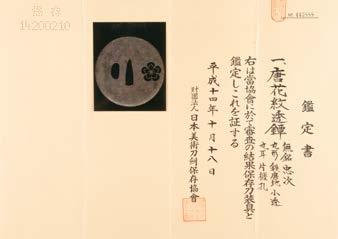 鑑定書
一、唐花紋透鐔
無銘 忠次
丸形 鉄磨地 小透
丸耳 片櫃孔
右は當協會に於て審査の結果保存刀装具と
鑑定しこれを証する
平成十四年十月十八日
財團法人日本美術刀剣保存協會